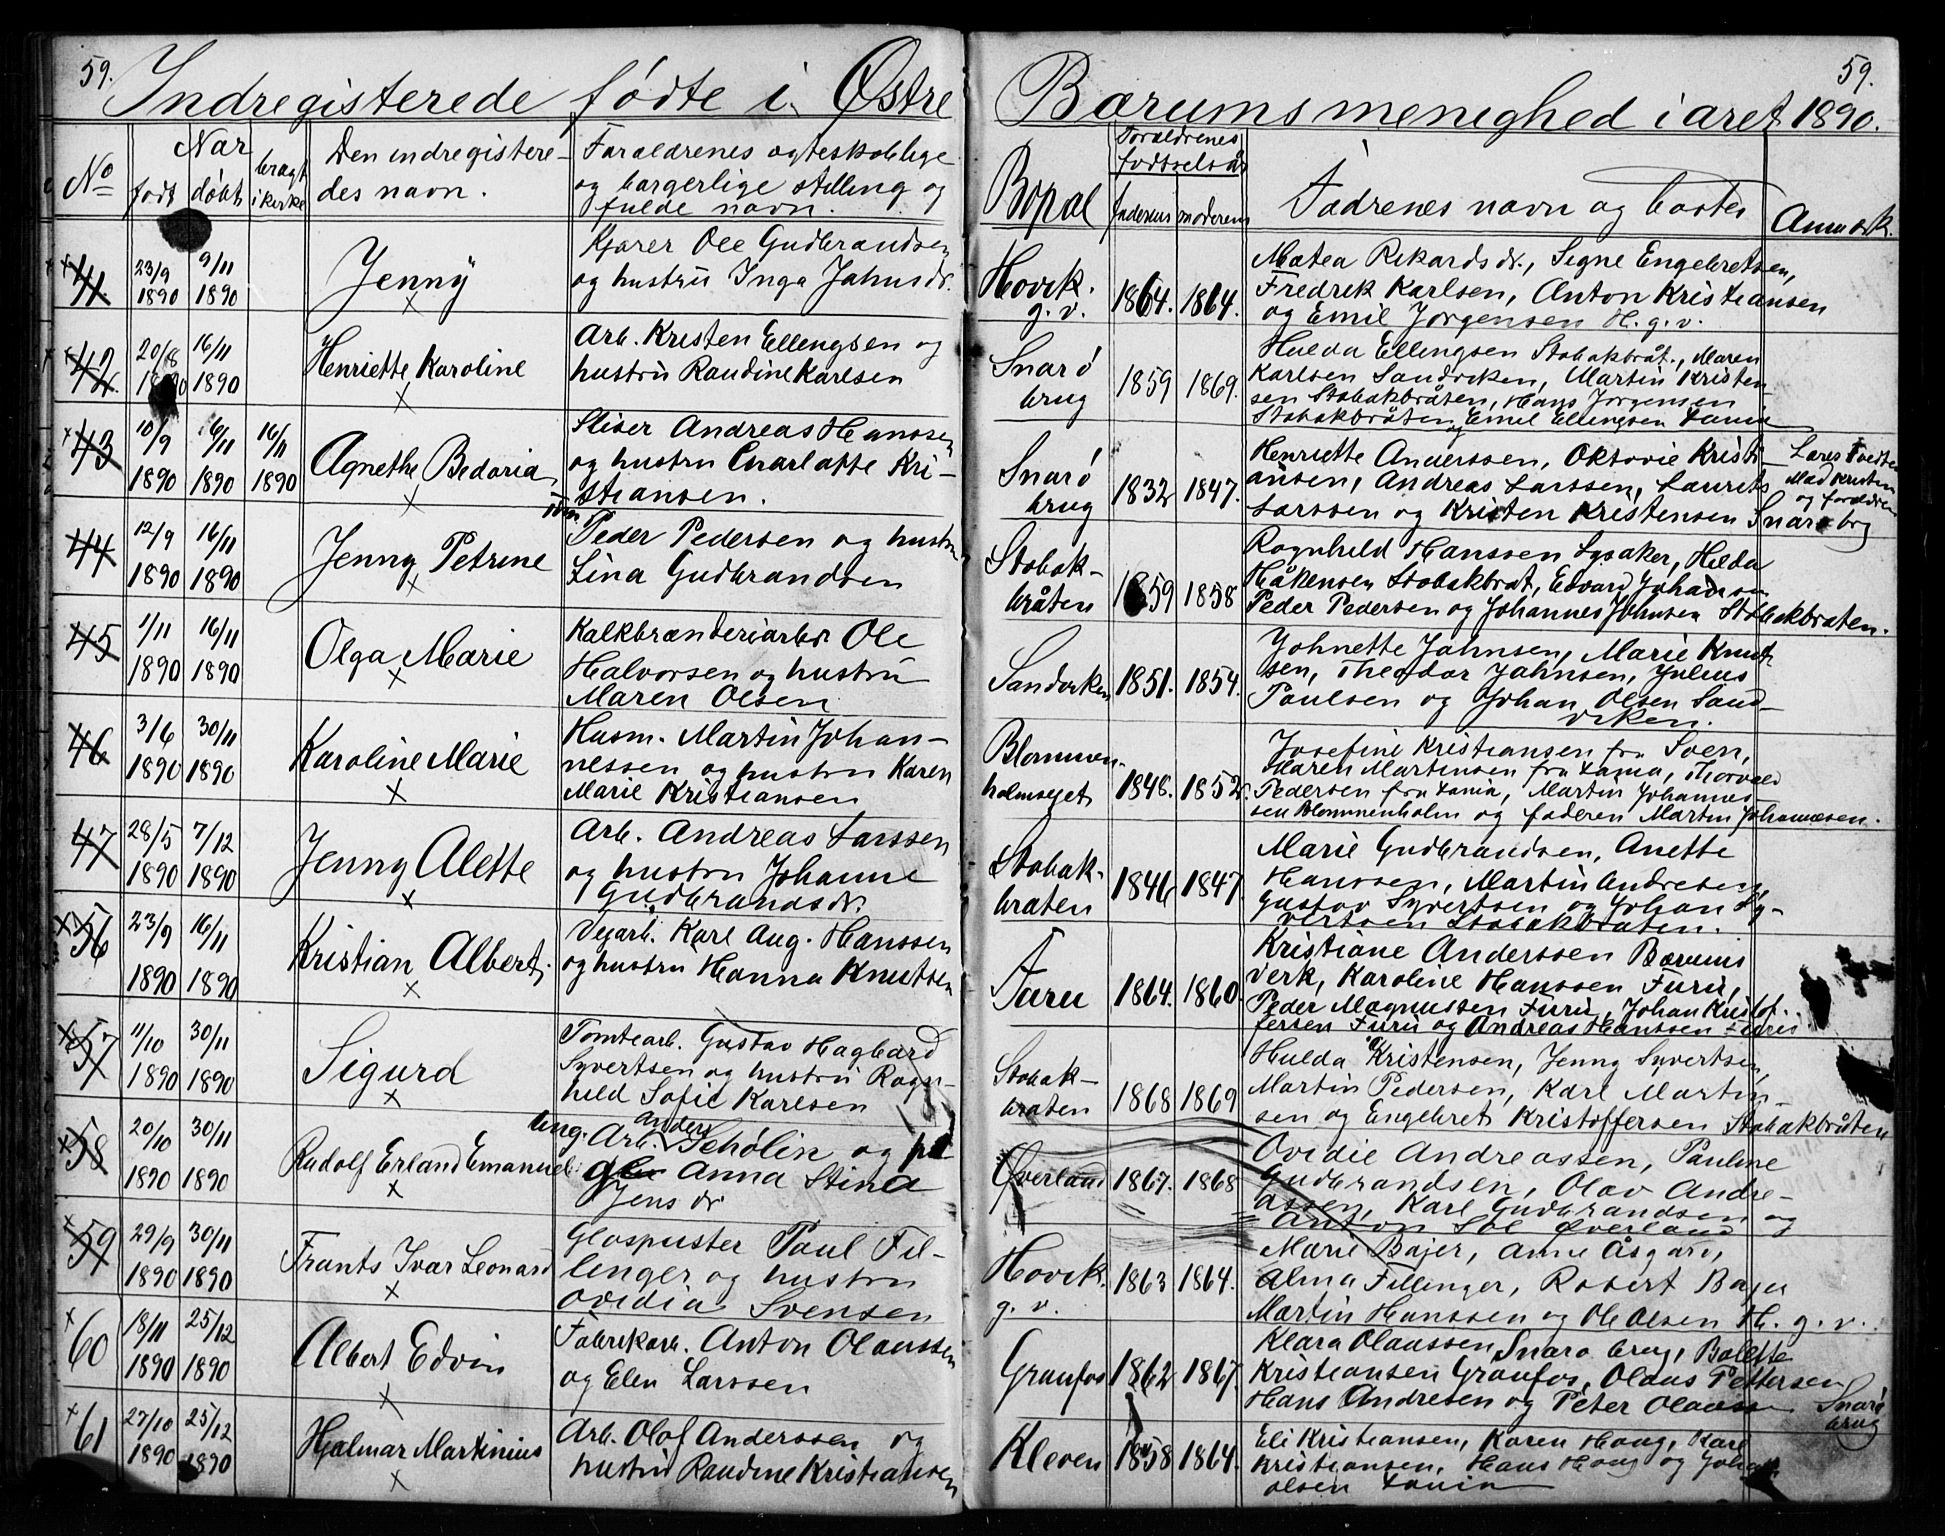 59.
Indregisterede fødte i Østre
Bærums menighed i aret 1890.
59.
No
Nar
født
døbt
bragt
i kirke
Den indregistere-
des navn.
Foraldrenes ægteskablige
og borgerlige stilling og
fulde navn.
Bopal
Foraldrenes
fødselsår
faderens
moderens
Fadrenes navn og bosted
Anmærk.
41 23/9 1890 9/11 1890
Jenny
×
Kjører Ole Gudbrandsen
og hustru Inga Jahnsdr.
Hovik. g. v.
1864. 1864.
Matea Rikardsdr., Signe Engebretsen,
Fredrik Karlsen, Anton Kristiansen
og Emil Jørgensen H. g. v.
42 20/8 1890 16/11 1890
Henriette Karoline
×
Arb. Kristen Ellingsen og
hustru Randine Karlsen
Snarø brug
1859 1869.
Hulda Ellingsen Stabakbråt., Maren
Karlsen Sandviken, Martin Kristen
sen Stabakbråten, Hans Jørgensen
Stabakbråten og Emil Ellingsen
43 10/9 1890 16/11 1890 16/11 1890
Agnethe Bedoria
×
Sliser Andreas Hanssen
og hustru Charlotte Kri-
stiansen.
Snarø brug
1832 1847.
Henriette Anderssen, Oktovie Kristi-
ansen, Andreas Larssen, Laurits
Larssen og Kristen Kristensen Snarøbrg
og foraldren
44 12/9 1890 16/11 1890
Jenny Petrine
×
Peder Pedersen og hustru
Lina Gudbrandsen
Stabak-
bråten
1859 1858
Ragnhild Hanssen Lysaker, Hilda
Håkensen Stabakbråt, Edvard Johansen
Peder Pedersen og Johannes Johnsen Stabakbraten.
45 1/11 1890 16/11 1890
Olga Marie
×
Kalkbrænderiarbdr Ole
Halvorsen og hustru
Maren Olsen
Sandviken
1851. 1854.
Johnette Jahnsen, Marie Knut
sen, Theodor Jahnsen, Julius
Paulsen og Johan Olsen Sand-
viken.
46 3/6 1890 30/11 1890
Karoline Marie
×
Husm. Martin Johan-
nessen og hustru Karen
Marie Kristiansen
Blommen-
holmeget
1848. 1852.
Josefine Kristiansen fra Sven,
Maren Martinsen fra Tania, Thorvald
Pedersen fra Tania, Martin Johannes-
sen Blommenholm og faderen Martin Johannesen.
47 28/5 1890 7/12 1890
Jenny Alette
×
Arb. Andreas Larssen
og hustru Johanne
Gudbrandsdr.
Stabak-
braten
1846 1847
Marie Gudbrandsen, Anette
Hanssen, Martin Andresen,
Gustav Syvertsen og Johan Sy-
vertsen Stabakbraten.
56 23/9 1890 16/11 1890
Kristian Albert.
×
Vejarb. Karl Aug. Hanssen
og hustru Hanna Knutsen
Furu
1864. 1860.
Kristiane Anderssen Bærums
Verk, Karoline Hanssen Furu,
Peder Magnussen Furu, Johan Kristof-
fersen Furu og Andreas Hanssen Furu
57 1/10 1890 30/11 1890
Sigurd
×
Tomtearb. Gustav Hagbard
Syvertsen og hustru Ragn-
hild Sofie Karlsen
Stabak-
braten
1868 1869
Hulda Kristensen, Jenny Syvertsen,
Martin Pedersen, Karl Martin-
sen og Engebret Kristoffersen Stabakbråten
58 20/10 1890 30/11 1890
Rudolf Erland Emanuel
×
Ung. Arb. Anders Schölin og
Anna Stina
Jens dr
Øverland
1867. 1868
Ovidie Andreassen, Pauline
Gudbrandsen, Olav Andre-
assen, Karl Gudbrandsen og
Anton Sol Øverland
59 29/9 1890 30/11 1890
Frants Ivar Leonard
×
Glaspuster Paul Fil-
linger og hustru
Ovidia Svensen
Hovik. g. v.
1863 1864.
Marie Bajer, Anne Åsgard,
Alma Fillinger, Robert Bajer
Martin Hanssen og Ole Olsen H. g. v.
60 18/11 1890 25/12 1890
Albert Edvin
×
Fabrikarb. Anton Olaussen
og Elen Larssen
Granfos
1862 1867.
Klara Olaussen Snarø brug, Bolette
Kristiansen Granfos, Olaus Pettersen
Hans Andresen og Peter Olaussen Snarø
brug
61 27/10 1890 25/12 1890
Hjalmar Martinius
×
Arb. Olof Anderssen og
hustru Randine Kristiansen
Kleven
1858 1864.
Eli Kristiansen, Karen Haug, Karl
Kristiansen, Hans Haug og Johan
Olsen